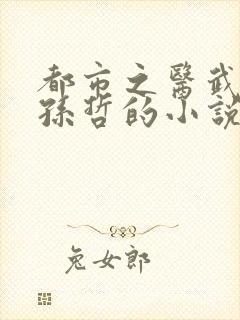 都市之醫武
孫哲的小說
兔女郎